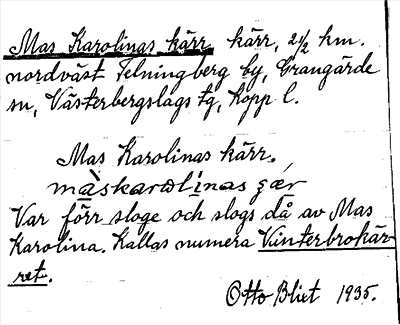 Mas Karolinas kärr kärr, 2½ km.
nordväst Telningberg by, Grangärde
sn, Västerbergslags tg, Kopp l.
Mas Karolinas kärr.
màskarωlinas çær
Var förr sloge och slogs då av Mas
Karolina. Kallas numera Vinterbrokär-
ret.
Otto Blixt 1935.